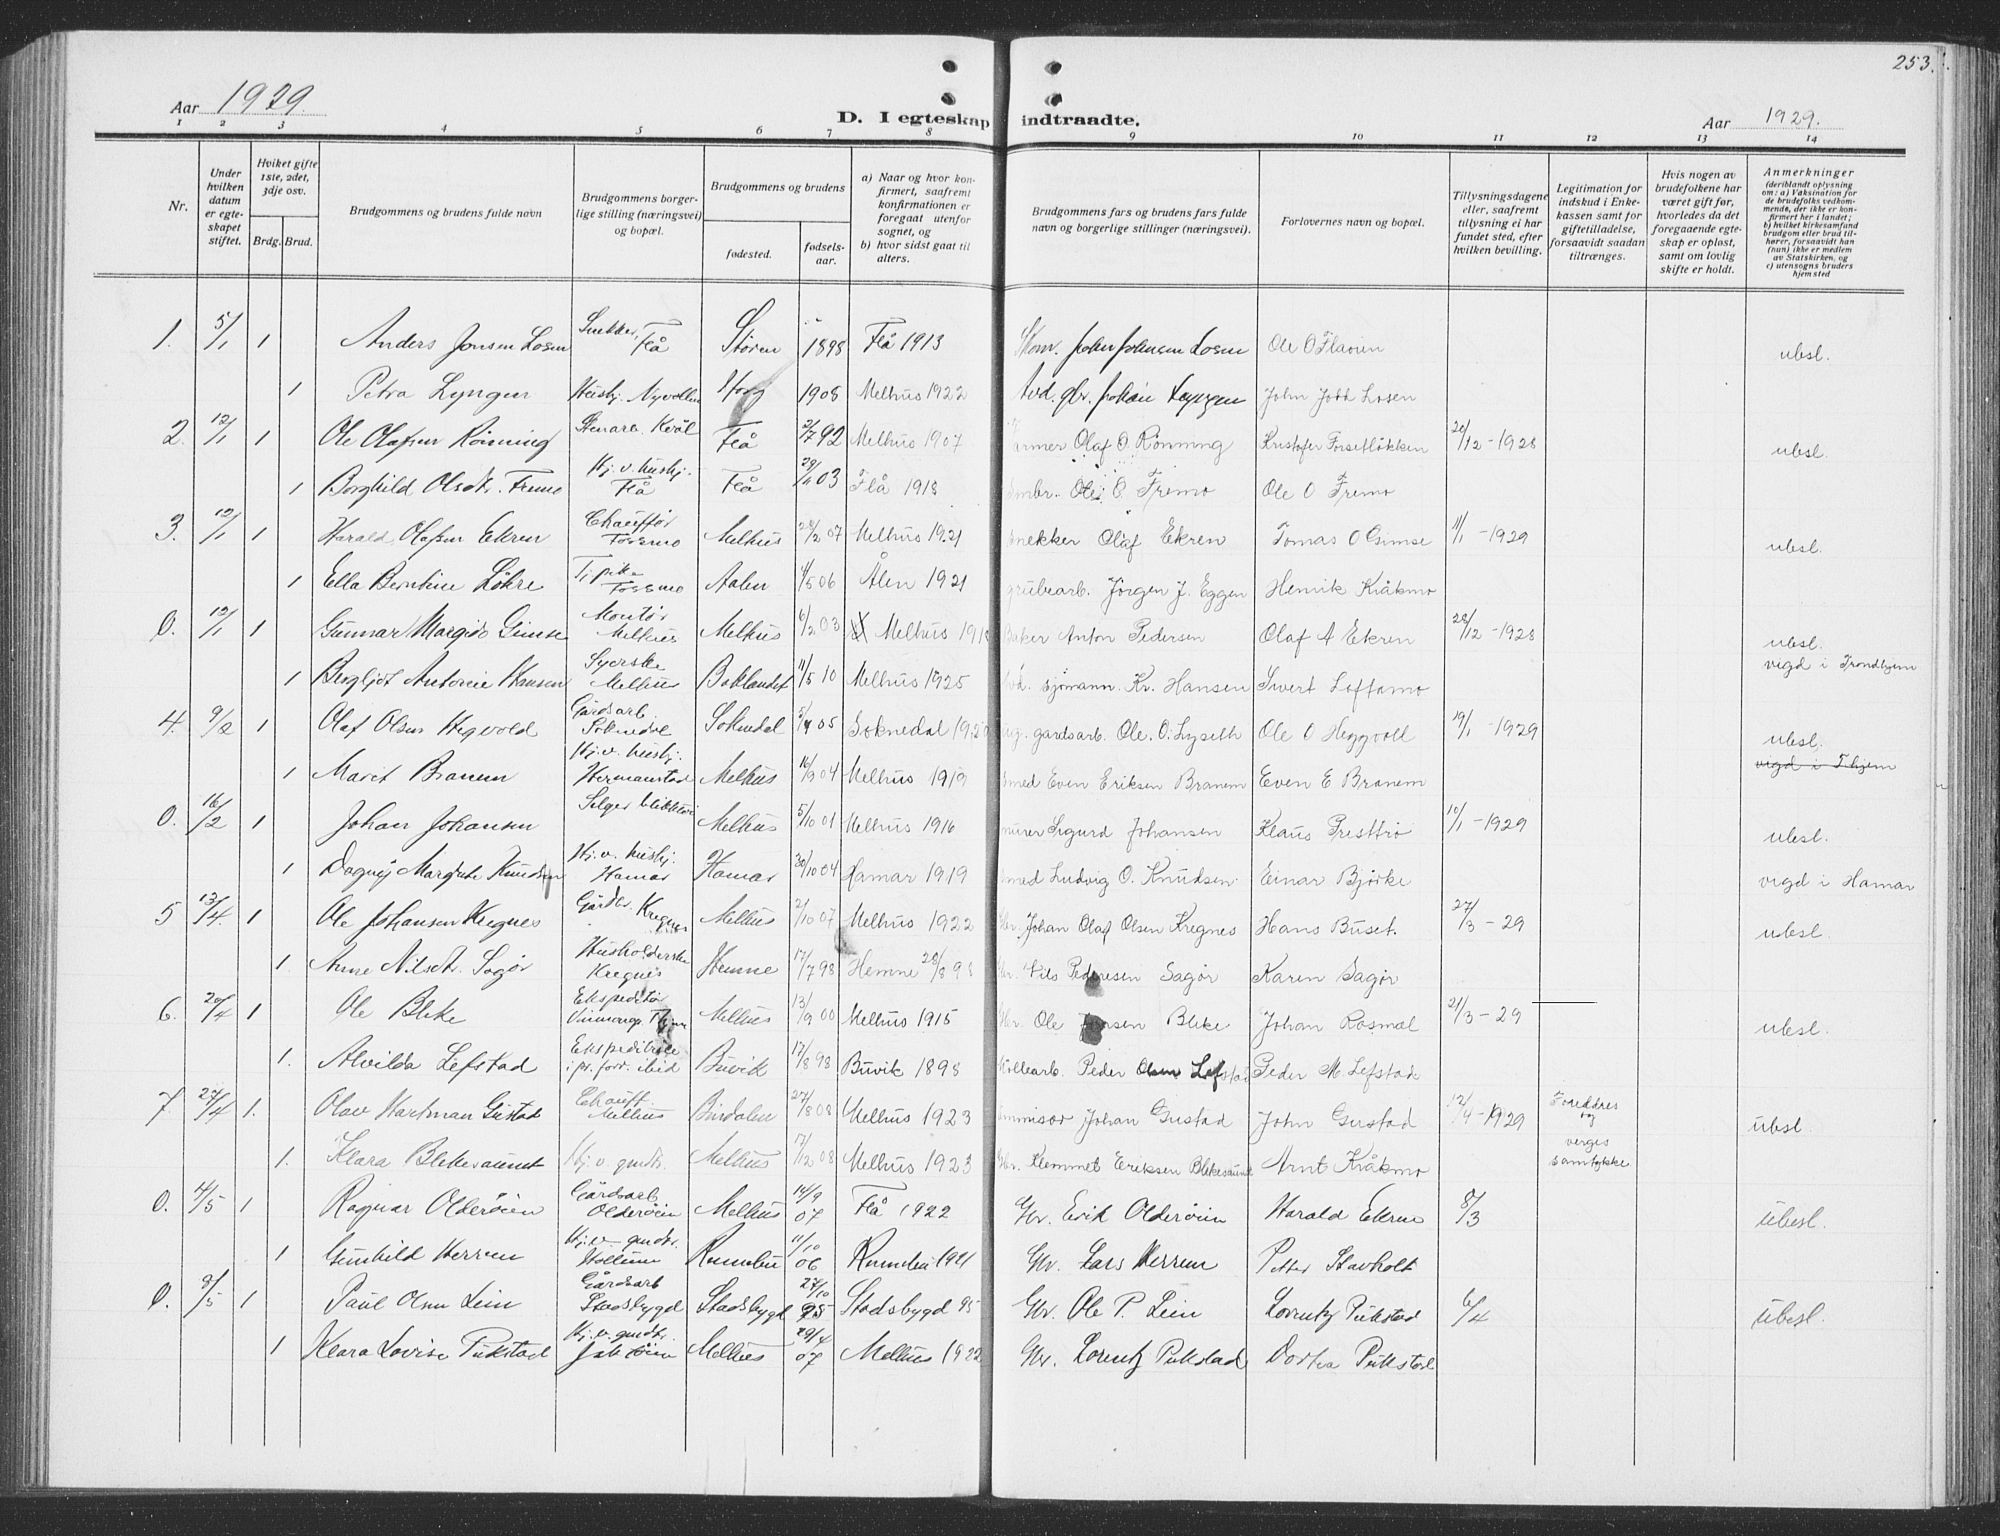 253.
Aar 1929.
D. I egteskap indtraadte.
Aar 1929.
1 2 3 4 5 6 7 8 9 10 11 12 13 14
Nr.
Under hvilken datum er egteskapet stiftet.
Hviket gifte 1ste, 2det, 3dje osv.
Brdg. Brud.
Brudgommens og brudens fulde navn
Brudgommens borgerlige stilling (næringsvei) og bopæl.
Brudgommens og brudens
fødested.
fødselsaar.
a) Naar og hvor konfirmert, saafremt konfirmationen er foregaat utenfor sognet, og
b) hvor sidst gaat til alters.
Brudgommens fars og brudens fars fulde navn og borgerlige stillinger (næringsvei).
Forlovernes navn og bopæl.
Tillysningsdagene eller, saafremt tillysning ei har fundet sted, efter hvilken bevilling.
Legitimation for indskud i Enkekassen samt for giftetilladelse, forsaavidt saadan tiltrænges.
Hvis nogen av brudefolkene har været gift før, hvorledes da det foregaaende egteskap er opløst, samt om lovlig skifte er holdt.
Anmerkninger
(deriblandt oplysning om: a) Vaksination for de brudefolks vedkommende, der ikke er konfirmert her i landet; b) hvilket kirkesamfand brudgom eller brud tilhører, forsaavidt han (nun) ikke er medlem av Statskirken, og c) utensogns bruders hjemsted
1. 5/1 1 Anders Jonsen Losen Snekker, Flå Støren 1898 Flå 1913 John Johnsen Losen Ole O Flåøien ubsl.
1 Petra Lyngen Hushj. Nyvollen Horg 1905 Melhus 1922 gbr. Johan Lyngen John Losen
2. 12/1 1 Ole Olafsen Rønning Kvål Flå 2/7 92 Melhus 1907 Olaf O. Rønning Kristofer Forsetløkken 20/12-1928 ubsl.
1 Borghild Olsdtr. Fremo Hj. v. hushj. Flå Flå 03 Flå 1918 Ole O. Fremo Ole O Fremo
3. 12/1 1 Harald Olafsen Ekren Chauffør Fossmo Melhus 07 Melhus 1921 snekker Olaf Ekren Tomas O Gimse 11/1-1929 ubsl.
1 Ella Bernhine Løkre Fossmo Aalen 06 Ålen 1921 grubearb. Jørgen J. Eggen Henrik Kråkmo
0. 12/1 1 Gunnar Margido Gimse Montør Melhus Melhus 6/2 03 Melhus 191 Baker Anton Pedersen Olaf A Ekren 28/12-1928 ubsl.
vigd i Trondhjem
1 Bergljot Antonie Hansen Syerske Melhus Baklandet 11/5 10 Melhus 1925 sjömann. Kr. Hansen Sivert Loftamo
4. 9/2 1 Olaf Olsen Hegvold Gårdsarb. Soknedal Soknedal 05 Soknedal 192 gardsarb. Ole. O. Lyseth Ole O Heggvoll 19/1-1929 ubsl.
vigd i T.hjem
1 Marit Branem Hj. v. hushj. Hermanstad Melhus 16/9 04 Melhus 1919 smed Even Eriksen Branem Even E Branem
0. 16/2 1 Johan Johansen Selger Melhus 5/10 01 Melhus 1916 murer Sigurd Johansen Klaus Presttrø 10/1-1929 ubsl.
1 Dagny Margrete Knudsen Hj. v. hushj. Hamar Hamar 30/10 04 Hamar 1919 smed Ludvig O. Knudsen Einar Bjørke vigd i Hamar
5 13/4 1 Ole Johansen Kregnes Gårdbr. Kregnes Melhus 2/10 07 Melhus 1922 Gbr. Johan Olaf Olsen Kregnes Hans Buset. 27/3-29 ubsl.
1. Anne Nilsdtr. Sagør Husholderske Kregnes Hemne 17/7 98 Hemne 28/8 98 Gbr. Nils Pedersen Sagør Karen Sagør
6. 20/4 1 Ole Bleke Ekspeditør Vinmonop. T.hjem Melhus 13/9 00 Melhus 1915 Gbr. Ole Jensen Bleke Johan Rosmæl 21/3-29 ubsl.
1. Alvilda Lefstad Ekspeditrise i pr. forr. ibid Buvik 17/8 98 Buvik 1898 Peder Olsen Lefstad Peder M. Lefstad
7. 27/4 1. Olav Hartman Gustad Chauff. Melhus Bindalen 27/8 08 Melhus 1923 Johan Gustad John Gustad 12/4-1929 Foreldres og verges samtykke ubsl.
1. Klara Blekesaunet Hj. v. grdbr. Melhus 17/12 08 Melhus 1923 Gbr. Klemmet Eriksen Blekesaune Arnt Kråkmo
0. 4/5 1 Ragnar Olderøien Gårdsarb. Olderøien Melhus 14/9 07 Flå 1922 Gbr. Erik Olderøien Harald Ekren 8/3 ubesl.
1 Gunhild Herrem Hj. v. grdbr. Rennebu 11/10 06 Rennebu 1921 Gbr. Lars Herrem Petter Stavholt
0. 8/5 1 Paul Olsen Lein Gårdsarb Stadsbygd Stadsbygd 27/10 Stadsbygd 95 Gbr. Ole P. Lein Lorentz Pukstad 6/4 ubesl.
1 Klara Lovise Pukstad Hj. v. grdbr. Melhus 29/4 07 Melhus 1922 Gbr. Lorentz Pukstad Dortea Pukstad